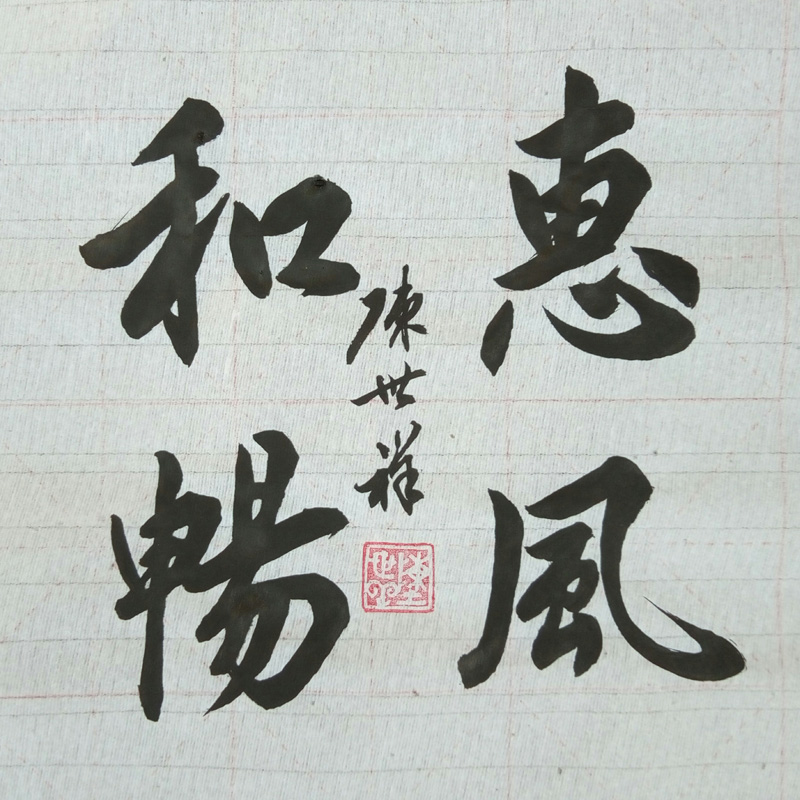 惠風
和暢
陳世祥